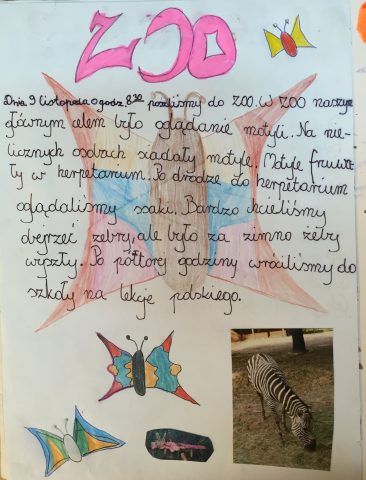 ZOO
Dnia 9 listopada o godz. 8.30 poszliśmy do ZOO. W ZOO naszym
głównym celem było oglądanie motyli. Na nie-
licznych osobach siadały motyle. Motyle fruwa-
ły w herpetarium. Po drodze do herpetarium
oglądaliśmy ssaki. Bardzo chcieliśmy
dojrzeć zebry, ale było za zimno żeby
wyszły. Po półtorej godziny wróciliśmy do
szkoły na lekcje polskiego.